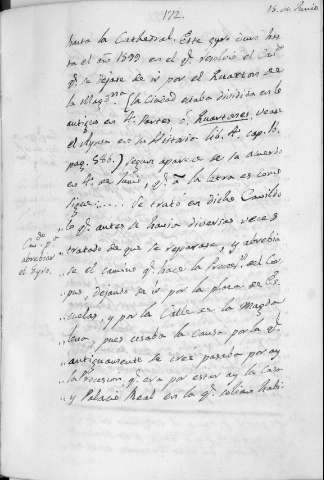 172.
15. de Junio
hasta la Cathedral. Este giro duró has
ta el año 1599 en el q.e resolvió el Cav.do
q.e se dejase de ir por el Quarton de
la Magd.na (la Ciudad estaba dividida en lo
antiguo en 4. partes ó Quartones, vease
el Aynsa en su Historia lib. 4. cap. 
pag. 556.) segun aparece de su acuerdo
en 4. de Junio, q.e a la letra es como
sigue: .... Se trató en dicho Cavildo
„ lo q.e antes se havia diversas veces
„ tratado de que se reparase, y abrebia
„ se el camino q.e hace la Proces.on del Cor
„ pus, dejando de ir por la plaza de Es
„ cuelas, y por la Calle de la Magda
„ lena, pues cesaba la causa por la q.e
„ antiguamente se cree pasaba por ay
„ la Procesion q.e era por estar ay la Casa
„ y Palacio Real en la q.e solian habi
abrebiar
el Gyro.